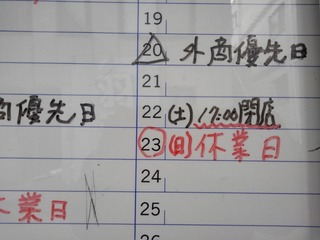 19
20 外商優先日
21
商優先日
22 (土) 17:00閉店
23 (日) 休業日
24
業日
25
26